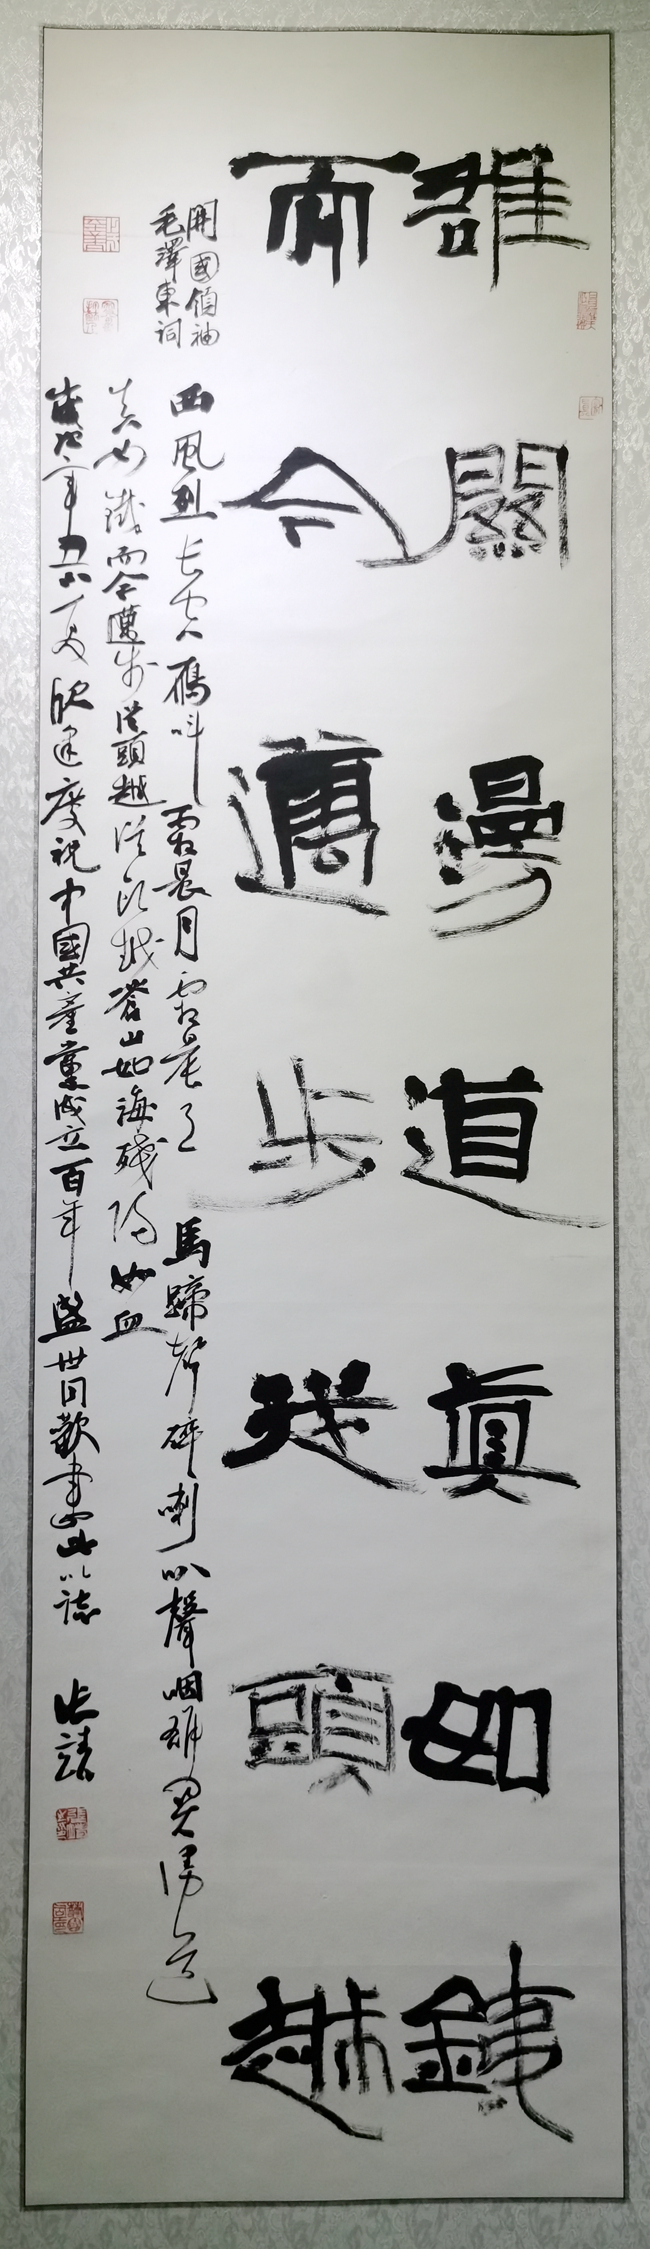 雄關漫道真如鐵
而今邁步从頭越
開國領袖
毛澤東詞
西風烈長空雁叫霜晨月霜晨月馬蹄聲碎喇叭聲咽雄關漫道
真如鐵而今邁步從頭越從頭越蒼山如海殘陽如血
歲次辛丑六一欣逢慶祝中國共產黨成立百年盛世同歡書此以誌